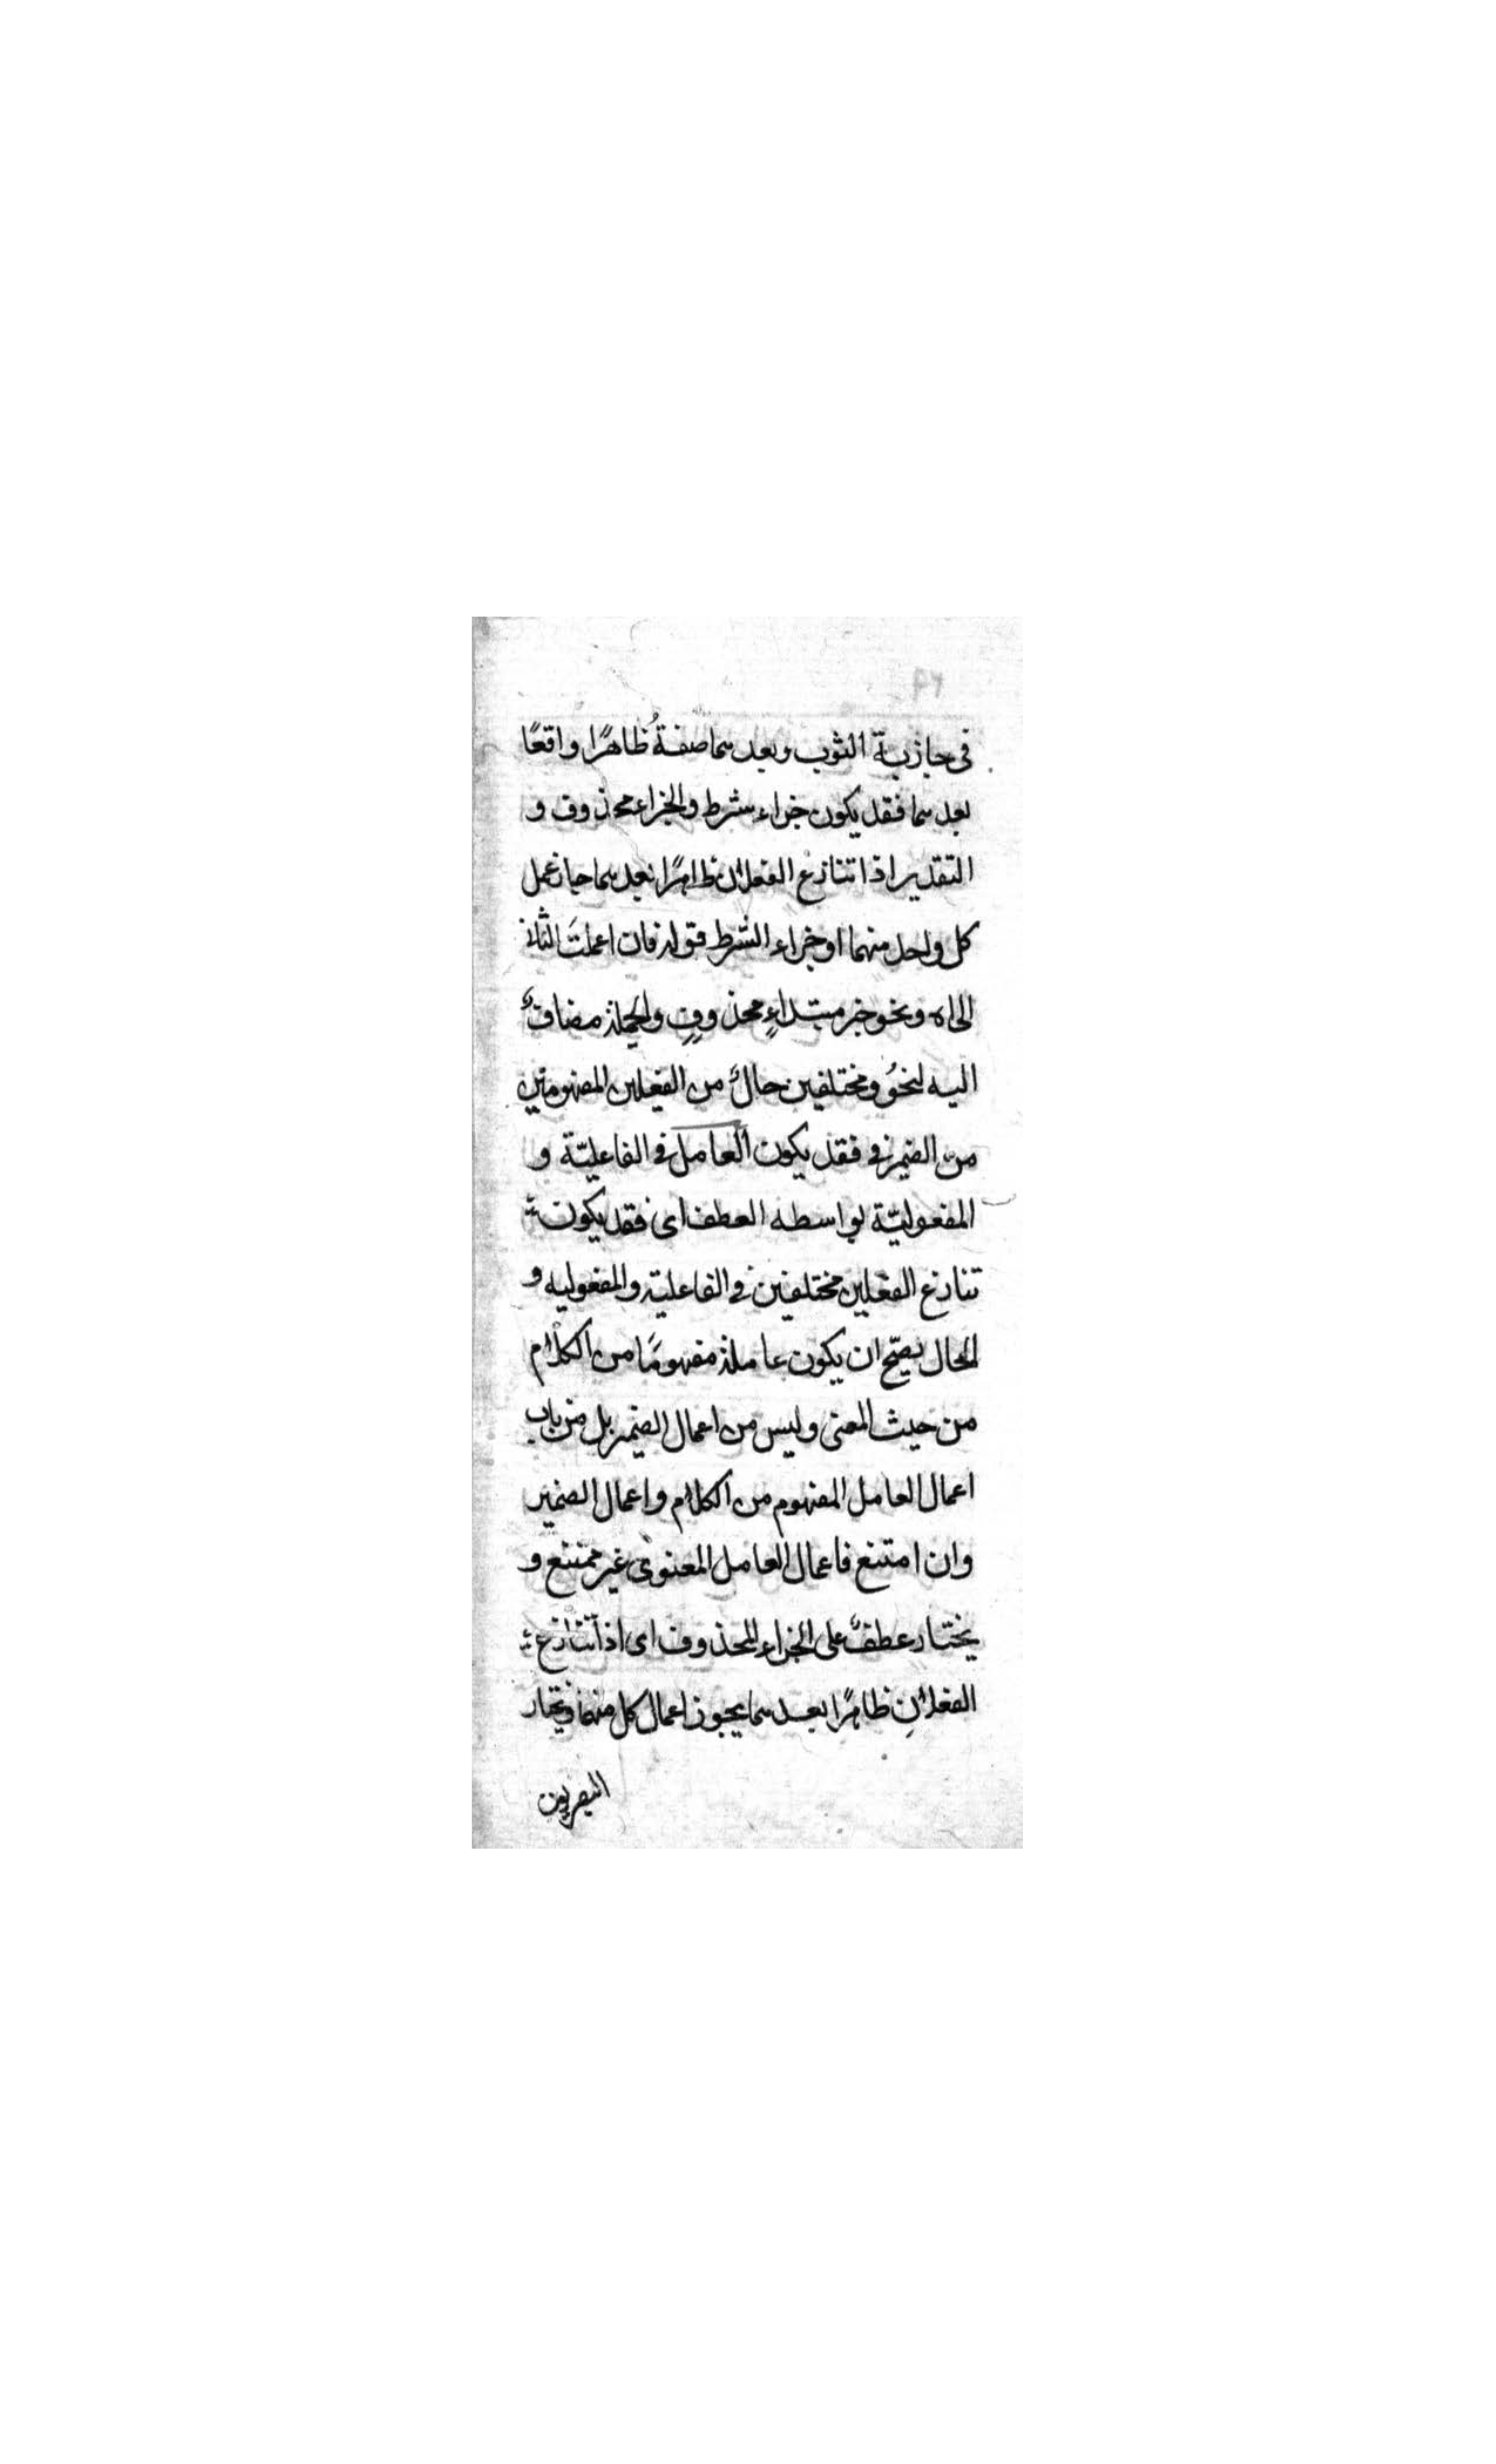 في جاذبة الثوب وبعدهما صفةُ ظاهرًا واقعًا
بعدهما فقد يكون جزاء شرط والجزاء محذوف و
التقدير اذا تنازع الفعلان ظاهرًا بعدهما جاز عمل
كل واحد منهما او جزاء الشرط قوله فان اعملتَ الثاني
الى اه ونحو خبر مبتداءٍ محذوفٍ والجملة مضافٌ
اليه لنحوُ ومختلفين حالٌ من الفعلين المفهومين
من الضمير في فقد يكون العامل في الفاعليّة و
المفعوليّة بواسطه العطف اى فقد يكون
تنازع الفعلين مختلفين في الفاعلية والمفعوليه و
الحال يصحّ ان يكون عامله مفهومًا من الكلام
من حيث المعنى وليس من اعمال الضمير بل من باب
اعمال العامل المفهوم من الكلام واعمال الضمير
وان امتنع فاعمال العامل المعنوى غير ممتنع و
يختار عطفٌ على الجزاء المحذوف اى اذا تنازع
الفعلانِ ظاهرًا بعدهما يجوز اعمال كل منهما ويختار
البصريون